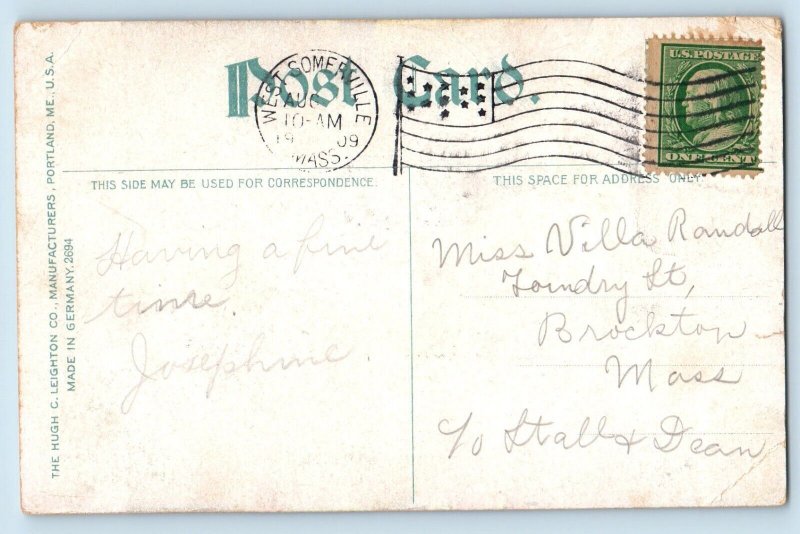 Post Card.
WEST SOMERVILLE
AUG
10-AM
19 09
MASS.
U.S. POSTAGE
ONE CENT
THIS SIDE MAY BE USED FOR CORRESPONDENCE.
THIS SPACE FOR ADDRESS ONLY
THE HUGH C. LEIGHTON CO., MANUFACTURERS, PORTLAND, ME., U.S.A.
MADE IN GERMANY. 2694
Having a fine
time.
Josephine.
Miss Villa Randall
Foundry St,
Brockton
Mass
c/o Stall & Dean